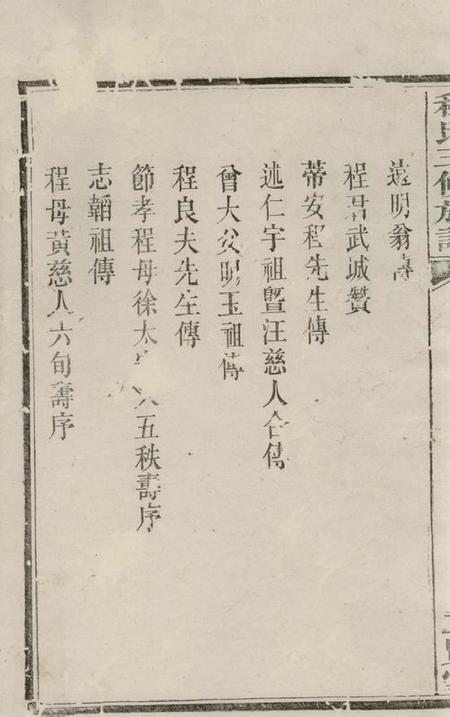 遠明翁傳
程君武城贊
蒂安程先生傳
述仁宇祖暨汪慈人合傳
曾大父明玉祖傳
程良夫先生傳
節孝程母徐太 人五秩壽序
志韜祖傳
程母黃慈人六旬壽序
程氏三修族譜